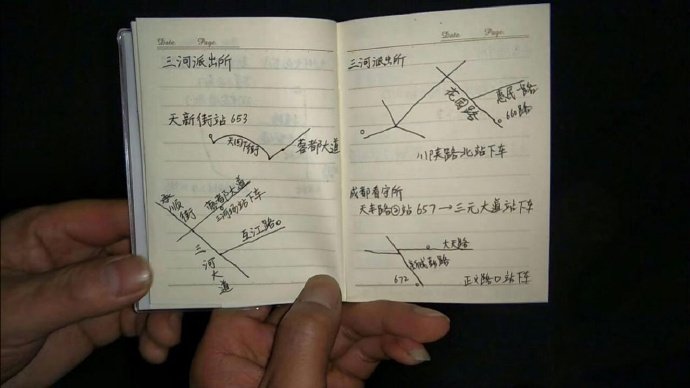 Date. Page.
三河派出所
天新街站 653
天回街
蓉都大道
承
顺
街
蓉都大道
三河场站下车
互江路
三
河
大
道
Date. Page.
三河派出所
花园路
惠民路
660路
川陕路北站下车
成都看守所
天丰路②站 657→三元大道站下车
大天路
672
正义路口站下车